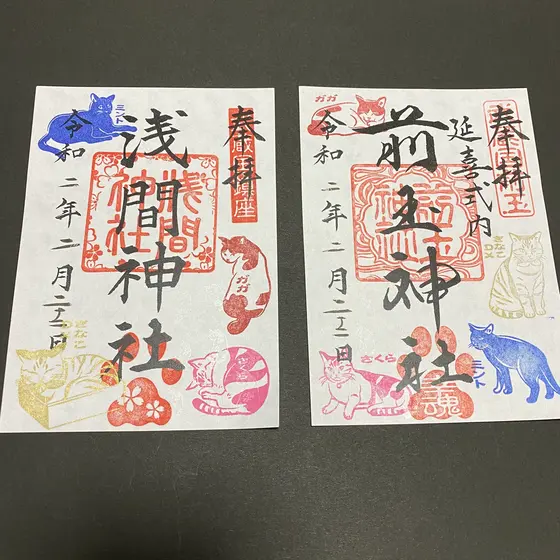 奉拝
浅間神社
浅間神社
令和二年二月二十二日
ミント
ガガ
さくら
きなこ
奉拝
延喜式内
前玉神社
前玉神社
令和二年二月二十二日
ガガ
きなこ
さくら
ミント
魂